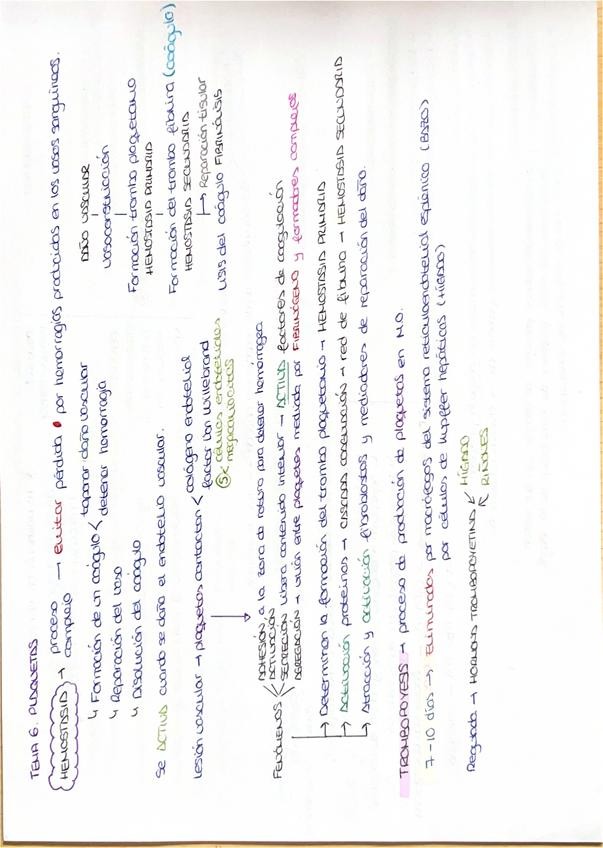 TEMA 6. PLAQUETAS
HEMOSTASIA → proceso complejo → evitar pérdida por hemorragias producidas en los vasos sanguíneos.
↳ Formación de un coágulo < taponar daño vascular
detener hemorragia
↳ Reparación del vaso
↳ Disolución del coágulo
DAÑO VASCULAR
Vasoconstricción
Formación trombo plaquetario
HEMOSTASIA PRIMARIA
Formación del trombo fibrina (coágulo)
HEMOSTASIA SECUNDARIA
↳ Reparación tisular
LISIS del coágulo FIBRINÓLISIS
Se ACTIVA cuando se daña el endotelio vascular.
Lesión vascular → plaquetas contactan < colágeno endotelial
factor Von Willebrand
células endoteliales
megacariocitos
FENÓMENOS < ADHESIÓN, a la zona de rotura para detener hemorragia
ACTIVACIÓN
SECRECIÓN libera contenido interior → ACTIVA factores de coagulación
AGREGACIÓN → unión entre plaquetas mediada por FIBRINÓGENO y formadores complejos
→ Determinan la formación del trombo plaquetario → HEMOSTASIA PRIMARIA
→ Activación proteínas → CASCADA COAGULACIÓN → red de fibrina → HEMOSTASIA SECUNDARIA
→ Atracción y activación fibroblastos y mediadores de reparación del daño.
TROMBOPOYESIS → proceso de producción de plaquetas en M.O.
7-10 días → Eliminadas por macrófagos del sistema reticuloendotelial esplénico (BAZO)
por células de Kupffer hepáticas (HÍGADO)
Regulada → HORMONA TROMBOPOYETINA < HÍGADO
RIÑONES